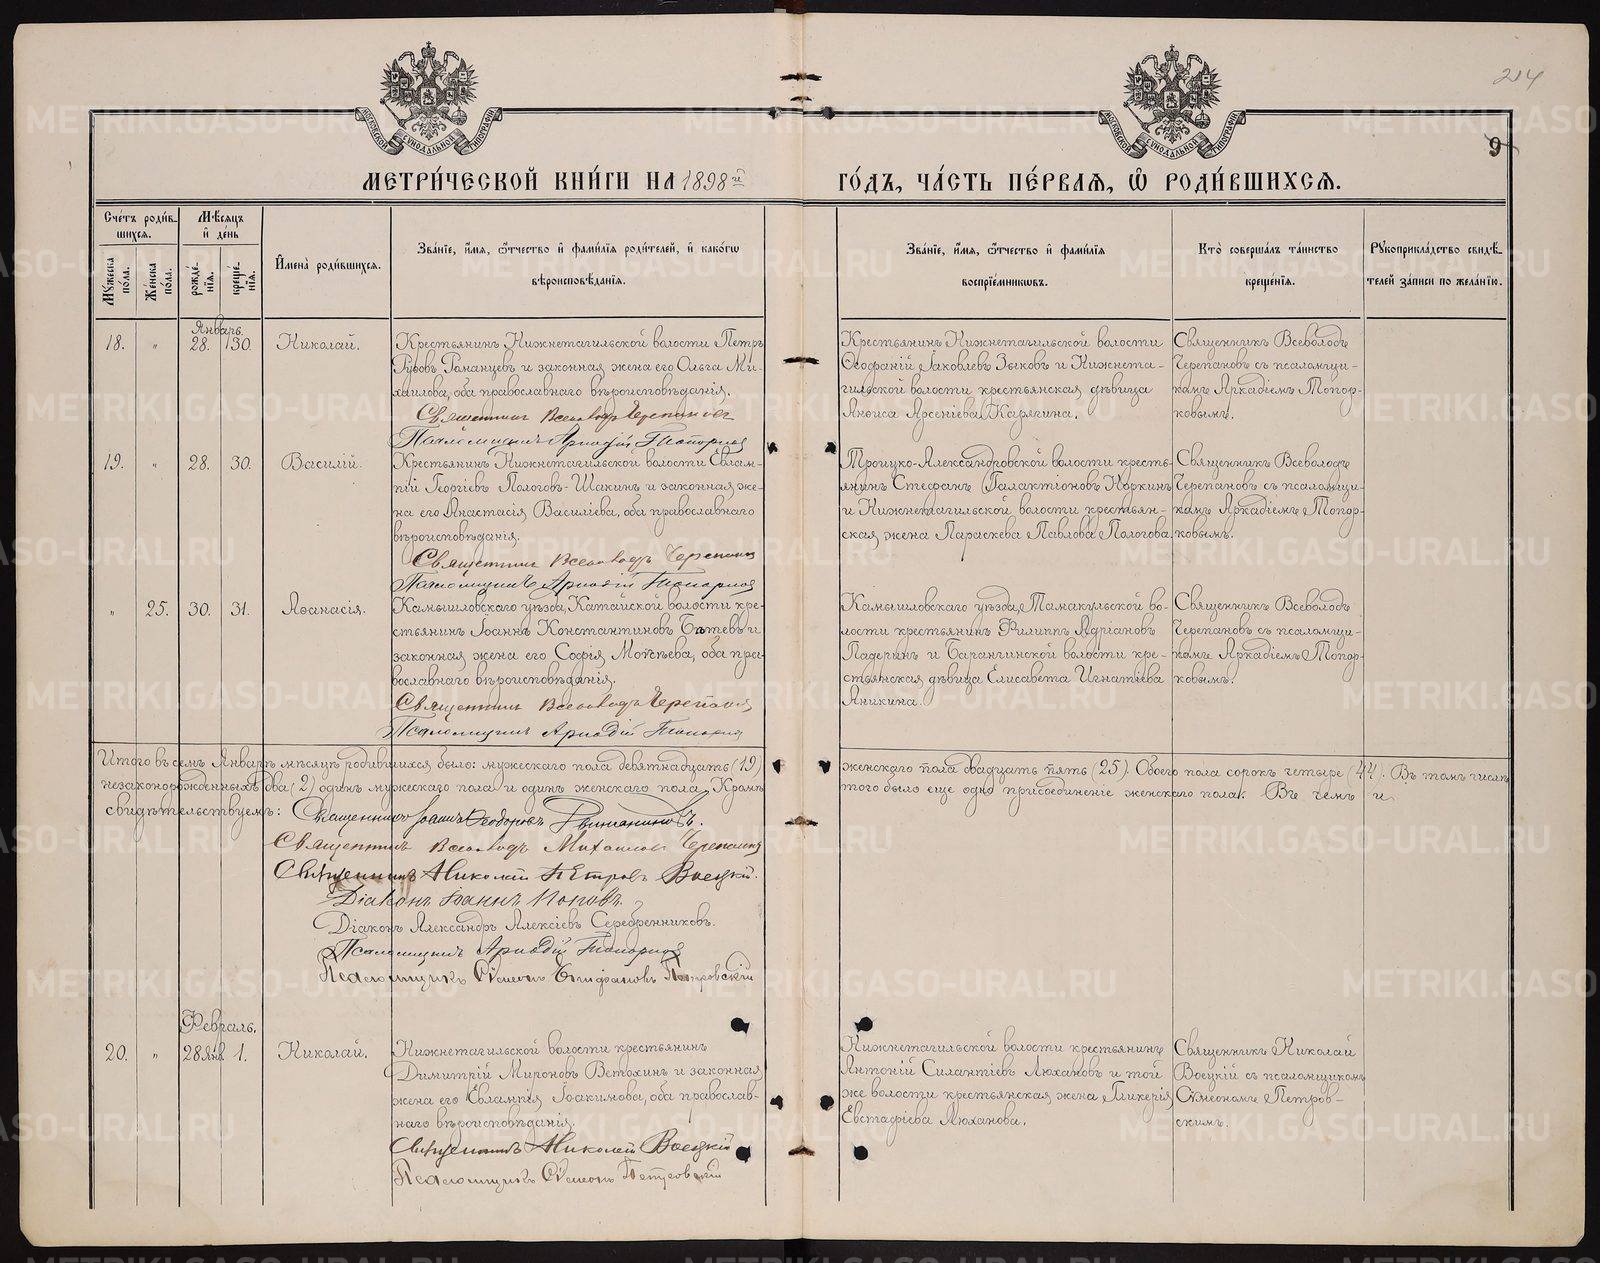 214
9
МЕТРИ́ЧЕСКОЙ КНИ́ГИ НА 1898й
ГО́ДЪ, ЧА́СТЬ ПЕ́РВАЯ, Ѽ РОДИ́ВШИХСЯ.
Сче́тъ роди́вшихся.
Му́жеска по́ла.
Же́нска по́ла.
Мѣ́сяцъ и де́нь
рожде́нїя.
креще́нїя.
Имена̀ роди́вшихся.
Зва́нїе, и́мя, ѻ́тчество и фами́лїя роди́телей, и како́гѡ
вѣроисповѣ́данїя.
Зва́нїе, и́мя, ѻ́тчество и фами́лїя
воспрїе́мниковъ.
Кто̀ соверша́лъ та́инство
креще́нїя.
Рукоприкла́дство свидѣ́-
телей за́писи по жела́нїю.
Январь.
18. " 28. 30. Николай.
Крестьянинъ Нижнетагильской волости Петръ
Румянцевъ и законная жена его Ольга Ми-
хаилова, оба православнаго вѣроисповѣданія.
Священникъ Всеволодъ Черепановъ
Псаломщикъ Аркадій Топорковъ
Крестьянинъ Нижнетагильской волости
Ѳеофаній Іаковлевъ Зыковъ и Нижнета-
гильской волости крестьянская дѣвица
Анѳиса Арсеніева Карягина.
Священникъ Всеволодъ
Черепановъ съ псаломщи-
комъ Аркадіемъ Топор-
ковымъ.
19. " 28. 30. Василій.
Крестьянинъ Нижнетагильской волости Евлам-
пій Георгіевъ Пологовъ-Шакинъ и законная же-
на его Анастасія Василіева, оба православнаго
вѣроисповѣданія.
Священникъ Всеволодъ Черепановъ
Псаломщикъ Аркадій Топорковъ
Троицко-Александровской волости кресть-
янинъ Стефанъ Галактіоновъ Норкинъ
и Нижнетагильской волости крестьян-
ская жена Параскева Павлова Пологова.
Священникъ Всеволодъ
Черепановъ съ псаломщи-
комъ Аркадіемъ Топор-
ковымъ.
" 25. 30. 31. Аѳанасія.
Камышловскаго уѣзда, Катайской волости кре-
стьянинъ Іоаннъ Константиновъ Бѣтевъ и
законная жена его Софія Моѵсеева, оба пра-
вославнаго вѣроисповѣданія.
Священникъ Всеволодъ Черепановъ
Псаломщикъ Аркадій Топорковъ
Камышловскаго уѣзда, Тамакульской во-
лости крестьянинъ Филиппъ Адріановъ
Падеринъ и Баранчинской волости кре-
стьянская дѣвица Елисавета Игнатіева
Аникина.
Священникъ Всеволодъ
Черепановъ съ псаломщи-
комъ Аркадіемъ Топор-
ковымъ.
Итого въ семъ Январѣ мѣсяцѣ родившихся было: мужескаго пола девятнадцать (19)
женскаго пола двадцать пять (25). Обоего пола сорокъ четыре (44). Въ томъ числѣ
незаконорожденныхъ два (2) одинъ мужескаго пола и одинъ женскаго пола. Кромѣ
того было еще одно присоединеніе женскаго пола. Въ чемъ и
свидѣтельствуемъ: Священникъ Іоаннъ Ѳеодоровъ Двиняниновъ.
Священникъ Всеволодъ Михаиловъ Черепановъ
Священникъ Николай Петровъ Воецкій.
Діаконъ Іоаннъ Поповъ.
Діаконъ Александръ Алексіевъ Серебренниковъ.
Псаломщикъ Аркадій Топорковъ
Псаломщикъ Сѵмеонъ Епифановъ Петровскій
Февраль.
20. " 28 янв 1. Николай.
Нижнетагильской волости крестьянинъ
Димитрій Мироновъ Ветохинъ и законная
жена его Евлампія Іоакимова, оба православ-
наго вѣроисповѣданія.
Священникъ Николай Воецкій
Псаломщикъ Сѵмеонъ Петровскій
Нижнетагильской волости крестьянинъ
Антоній Силантіевъ Люхановъ и той
же волости крестьянская жена Гликерія
Евстафіева Люханова.
Священникъ Николай
Воецкій съ псаломщикомъ
Сѵмеономъ Петров-
скимъ.
METRIKI.GASO-URAL.RU